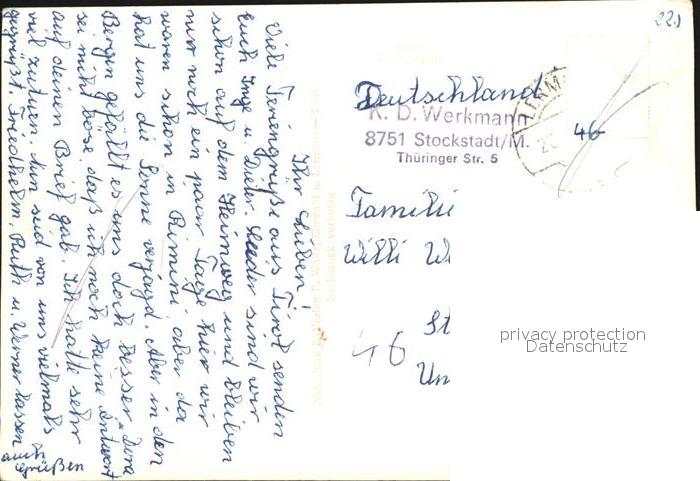 Ihr Lieben!
Viele Feriengrüße aus Tirol senden
Euch Inge u. Dieter. Leider sind wir
schon auf dem Heimweg und bleiben
nur noch ein paar Tage hier wir
waren schon in Rimini aber da
hat uns die Sonne verjagd. Aber in den
Bergen gefällt es uns doch besser. Dora
sei nicht böse, daß ich noch keine Antwort
auf deinen Brief gab. Ich hatte sehr
viel zutuen. Nun seid von uns vielmals
gegrüßt. Friedhelm, Ruth u. Werner lassen
auch grüßen
221
Deutschland
K. D. Werkmann
8751 Stockstadt/M.
Thüringer Str. 5
46
Familie
Willi
46
privacy protection
Datenschutz